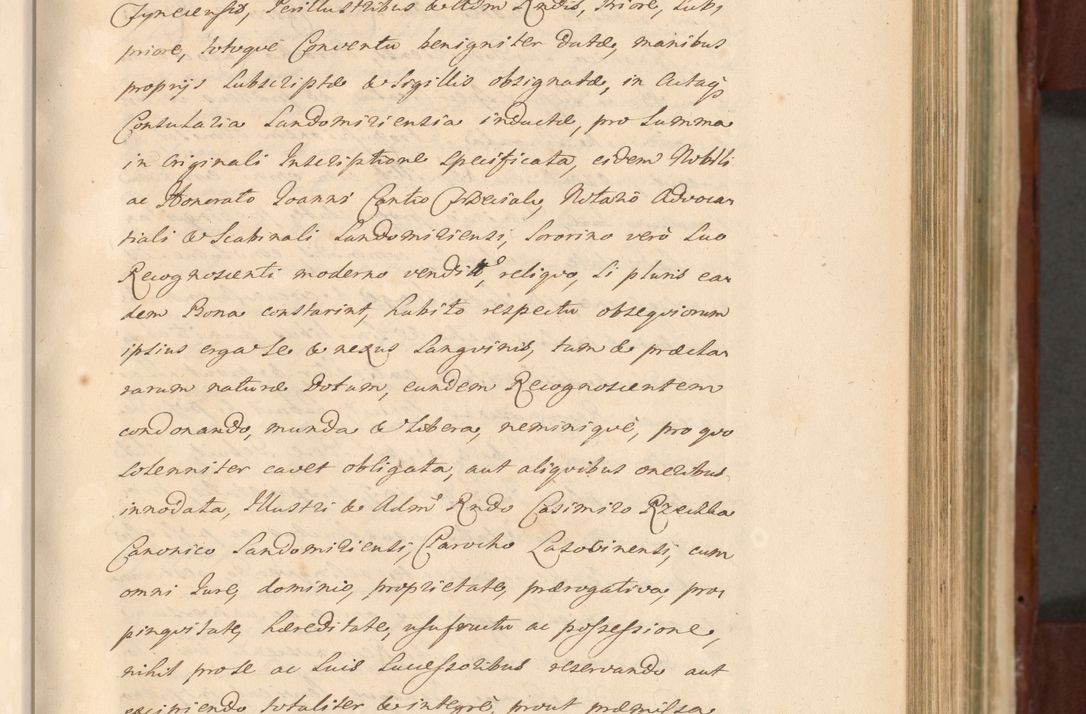 Tynecensis, Perillustribus & Adm Rndis, Priore, Sub,
priore, totoquè Conventu benigniter datæ, manibus
proprijs Subscriptæ & Sigillis obsignatæ, in Actaqꝫ
Consularia Sandomiriensia inductæ, pro Summa
in Originali Inscriptione specificata, eidem Nobili
ac Honorato Joanni Cantio Notario Advoca,
tiali & Scabinali Sandomiriensi, Sororino verò Suo
Recognoscenti moderno vendit, reliquo, Si pluris ea,
dem Bona constarint, habito respectu obseqviorum
ipsius erga Se & nexus Sangvinis, tum & præcla,
rarum naturæ Dotum, eundem Recognoscentem
condonando, munda & libera, neminiquè, pro quo
Solenniter cavet obligata, aut aliqvibus oneribus
innodata, Illustri & Adm Rndo Casimiro Rzechka
Canonico Sandomiriensi, Parocho Lasocinensi, cum
omni Jure, dominio, proprietate, prærogativa, pro,
pinqvitate, hæreditate, usufructu ac possessione,
nihil pro se ac Suis Successoribus reservando aut
excipiendo totaliter & integrè, prout præmissa